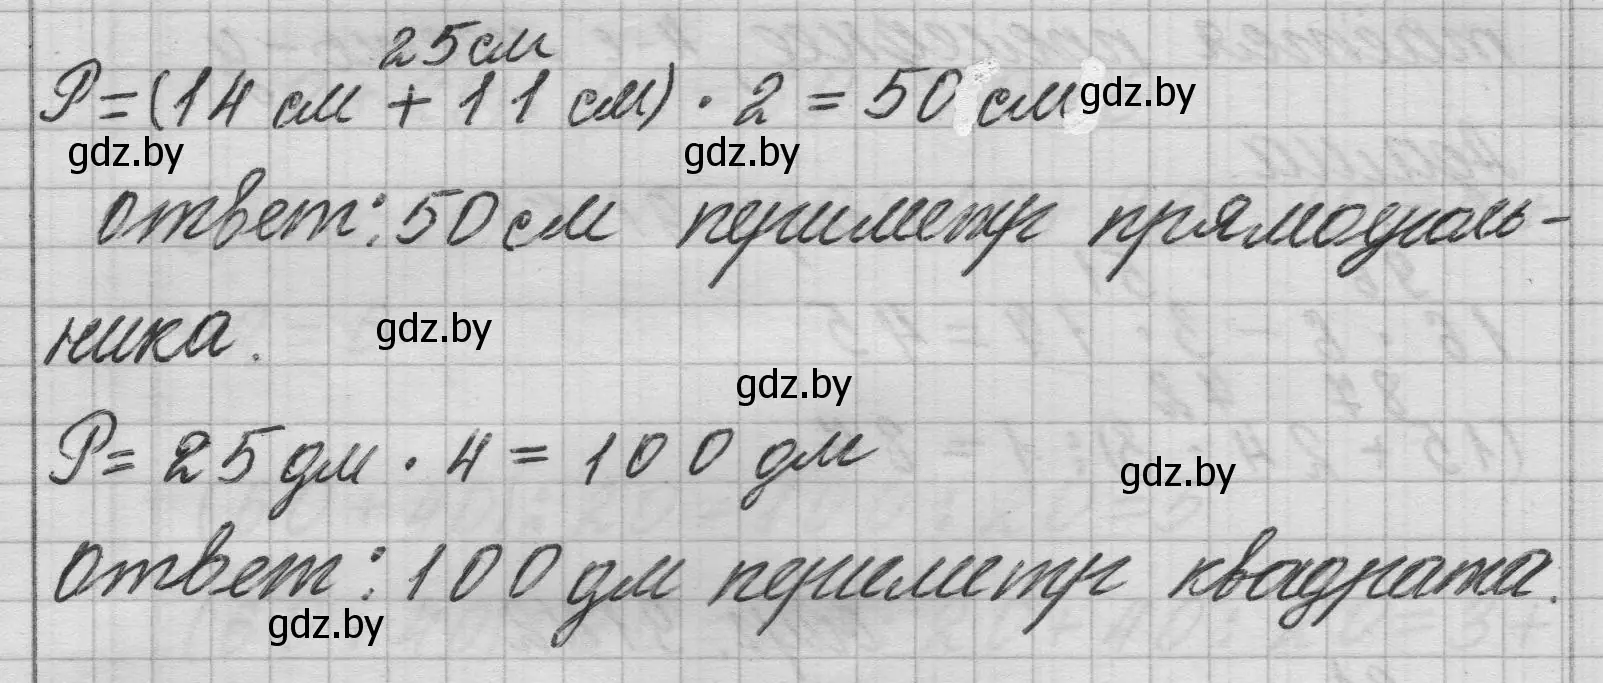 25 см
P = (14 см + 11 см) · 2 = 50 см gdz.by
gdz.by gdz.by
ответ: 50 см периметр прямоуголь-
ника. gdz.by
gdz.by
P = 25 дм · 4 = 100 дм
gdz.by
ответ: 100 дм периметр квадрата.
gdz.by